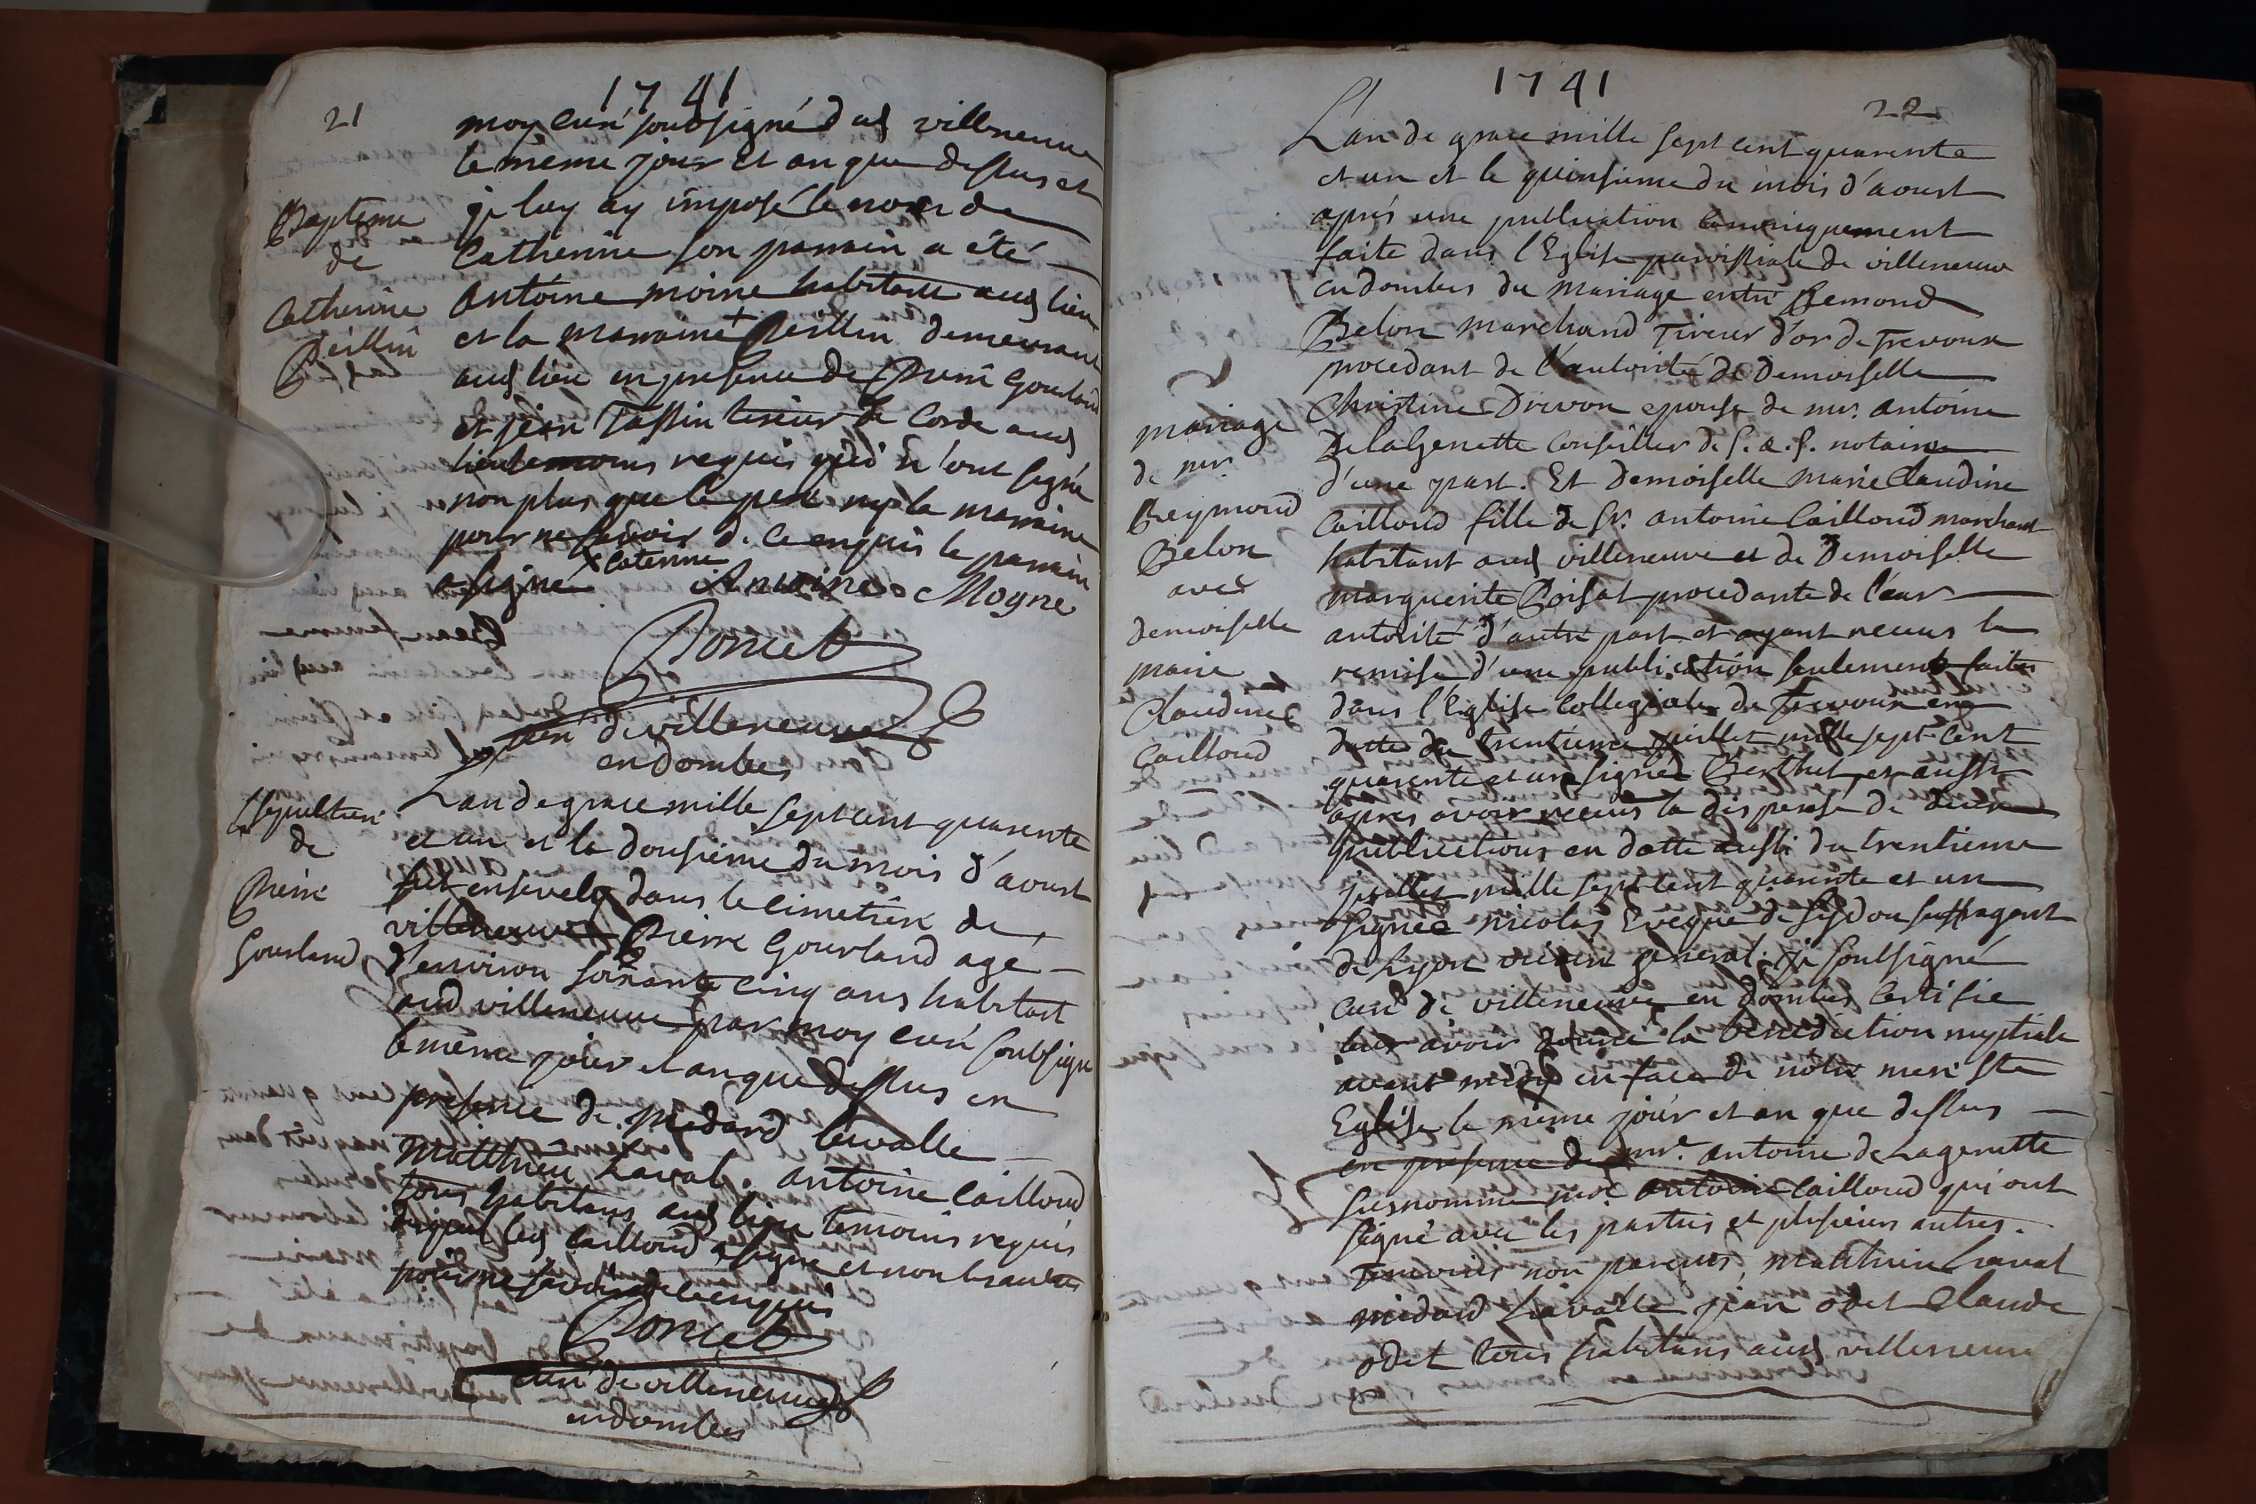 1741
21
moy curé soubsigné d auꝰ villeneuve
le même jour et an que dessus et
je luy ay imposé le nom de
Catherine son parrain a été
antoine moine habitant audᵗ lieu
et la marraine + Peillin demeurant
audᵗ lieu en presence de Pierre Gourland
et jean Tassin tireur de corde audᵗ
lieu temoins requis qui n'ont signé
non plus que le pere ny la marraine
pour ne savoir de ce enquis le parrain
a signé x Caterine Antoine Mogne
Poncet
curé de villeneuve
en dombes
Bapteme
de
Catherine
Peillin
L'an de grace mille sept cent quarente
et un et le dousieme du mois d'aoust
fut ensevely dans le cimetiere de
villeneuve Pierre Gourland agé
d'environ soixante cinq ans habitant
aud villeneuve par moy curé soubsigné
le même jour et an que dessus en
presence de medard levalle
Matthieu Laval. antoine Cailloud
tous habitans audᵗ lieu temoins requis
lesd Cailloud a signé et non les autres
pour ne savoir de ce enquis
Poncet
curé de villeneuve
en dombes
sepulture
de
Pierre
Gourland
1741
22
L'an de grace mille sept cent quarente
et un et le quinsieme du mois d'aoust
aprés une publication canoniquement
faite dans l'Eglise parroissiale de villeneuve
en dombes du mariage entre Remond
Belon marchand Tireur d'or de Trevoux
procedant de l'autorité de Demoiselle
Christine Drevon epouse de mr. antoine
Delagenette conseiller de S. A. S. notaire
d'une part. Et Demoiselle Marie Claudine
Cailloud fille de Sr. antoine Cailloud marchant
habitant audᵗ villeneuve et de Demoiselle
marguerite Poisat procedante de leur
autorité d'autre part et ayant receus la
remise d'une publication seulement faite
dans l'Eglise Collegiale de Trevoux en
datte du trentieme juillet mille sept cent
quarente et un signé Berthet, et aussi
apres avoir receus la dispense de deux
publications en datte aussi du trentieme
juillet mille sept cent quarente et un
signée nicolas Eveque de Sydon suffragent
de Lyon vicaire general; je soubsigné
curé de villeneuve en dombes certifie
leur avoir donné la benediction nuptiale
avant midy en face de notre mere Ste
Eglise le même jour et an que dessus
en presence de mr. antoine de Lagenette
susnommé antoine Cailloud qui ont
signé avec les parties et plusieurs autres.
Temoins non parens, matthieu Laval
médard Levalle jean odet Claude
odet tous habitans audᵗ villeneuve
mariage
de mr
Reymond
Belon
avec
demoiselle
marie
Claudine
Cailloud